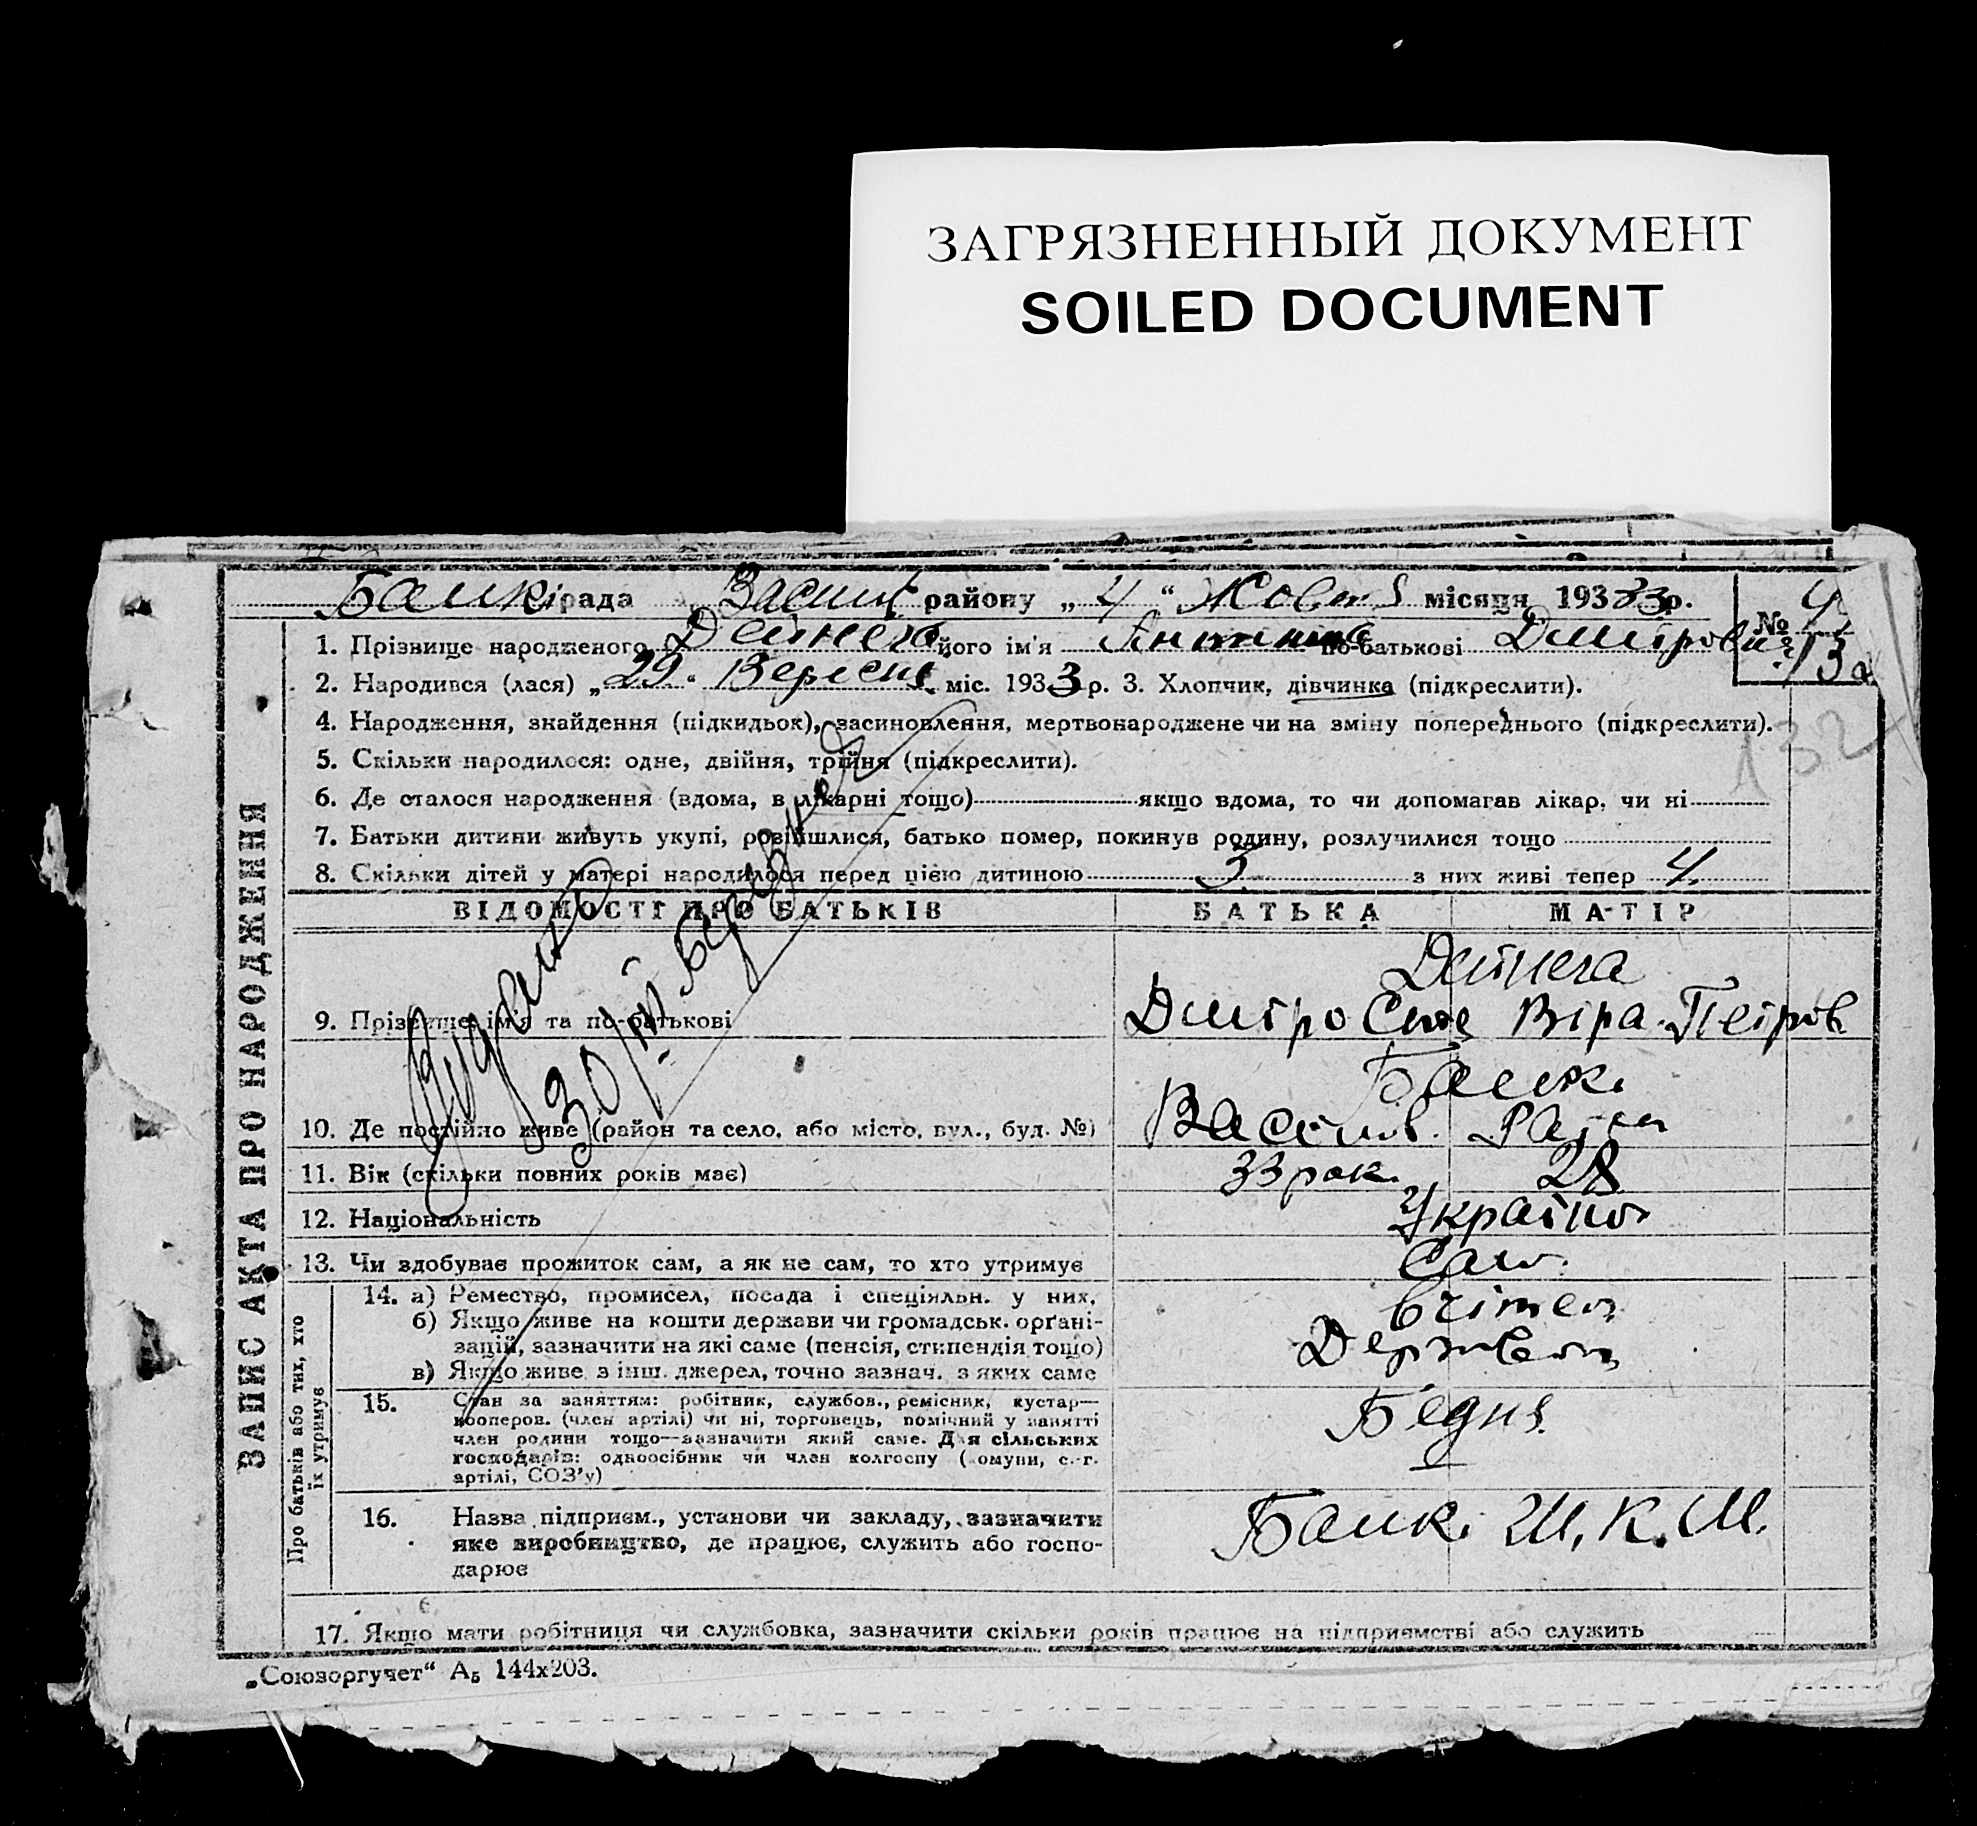 ЗАГРЯЗНЕННЫЙ ДОКУМЕНТ
SOILED DOCUMENT
рада району „ 4 “ Жовт місяця 193 33 р.
№ 4
13
132
ЗАПИС АКТА ПРО НАРОДЖЕННЯ
1. Прізвище народженого Дейнега його ім'я по-батькові Дмітров
2. Народився (лася) „ 29 “ Вересня міс. 193 3 р. 3. Хлопчик, дівчинка (підкреслити).
4. Народження, знайдення (підкидьок), засиновлення, мертвонароджене чи на зміну попереднього (підкреслити).
5. Скільки народилося: одне, двійня, трійня (підкреслити).
6. Де сталося народження (вдома, в лікарні тощо) якщо вдома, то чи допомагав лікар, чи ні
7. Батьки дитини живуть укупі, розійшлися, батько помер, покинув родину, розлучилися тощо
8. Скільки дітей у матері народилося перед цією дитиною 3 з них живі тепер 4
ВІДОМОСТІ ПРО БАТЬКІВ БАТЬКА МАТІР
Дейнега
9. Прізвище, ім'я та по-батькові Дміро Віра Петров
10. Де постійно живе (район та село, або місто, вул., буд. №)
11. Вік (скільки повних років має) 33 рок. 28
12. Національність
13. Чи здобуває прожиток сам, а як не сам, то хто утримує Сам
Про батьків або тих, хто їх утримує
14. а) Ремество, промисел, посада і спеціяльн. у них,
б) Якщо живе на кошти держави чи громадськ. орґані-
зацій, зазначити на які саме (пенсія, стипендія тощо)
в) Якщо живе з інш. джерел, точно зазнач. з яких саме
15. Стан за заняттям: робітник, службов., ремісник, кустар—
кооперов. (член артілі) чи ні, торговець, помічний у занятті
член родини тощо—зазначити який саме. Для сільських
господарів: одноосібник чи член колгоспу (комуни, с.-г.
артілі, СОЗ'у)
Бедня
16. Назва підприєм., установи чи закладу, зазначити
яке виробництво, де працює, служить або госпо-
дарює
Ш. К. М.
17. Якщо мати робітниця чи службовка, зазначити скільки років працює на підприємстві або служить
„Союзоргучет“ А₅ 144х203.